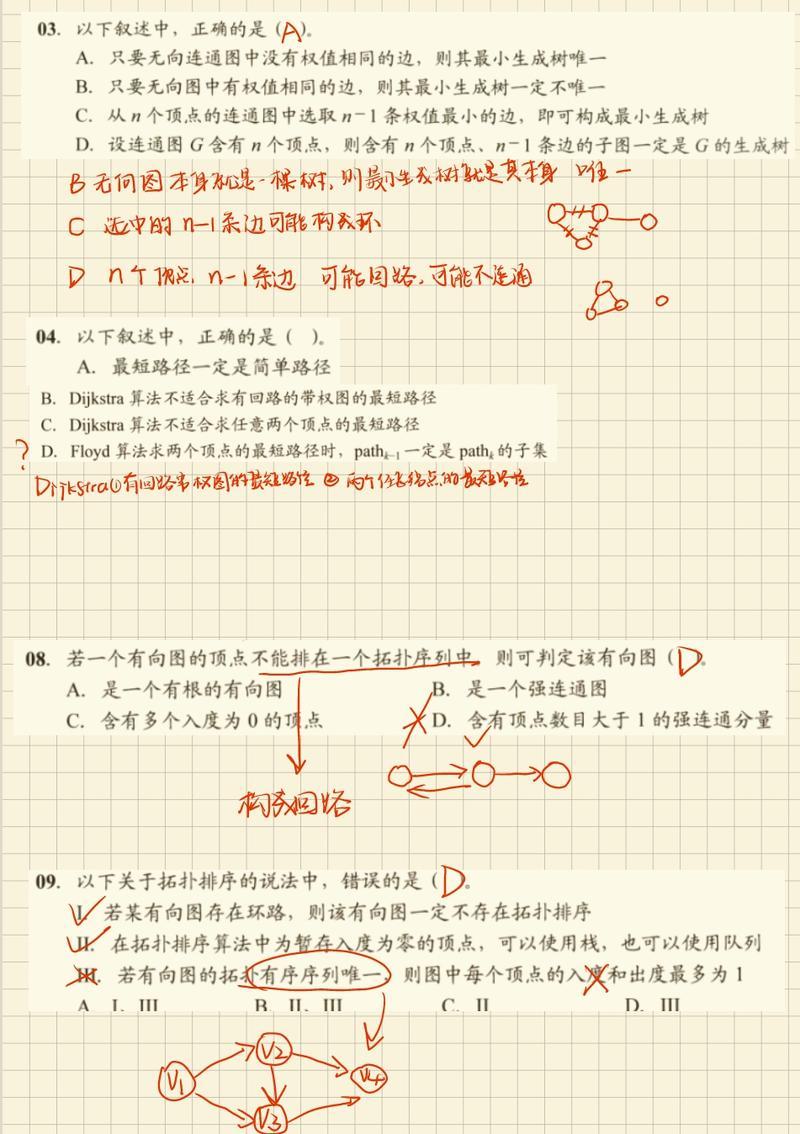 03. 以下叙述中，正确的是（A）。
A. 只要无向连通图中没有权值相同的边，则其最小生成树唯一
B. 只要无向图中有权值相同的边，则其最小生成树一定不唯一
C. 从 n 个顶点的连通图中选取 n－1 条权值最小的边，即可构成最小生成树
D. 设连通图 G 含有 n 个顶点，则含有 n 个顶点、n－1 条边的子图一定是 G 的生成树
B 无向图本身就是一棵树，则最小生成树就是其本身 唯一
C 选中的 n-1 条边可能构成环
D n个顶点 n-1条边 可能回路，可能不连通
04. 以下叙述中，正确的是（ ）。
A. 最短路径一定是简单路径
B. Dijkstra 算法不适合求有回路的带权图的最短路径
C. Dijkstra 算法不适合求任意两个顶点的最短路径
? D. Floyd 算法求两个顶点的最短路径时，pathₖ₋₁一定是 pathₖ 的子集
Dijkstra①有回路带权图的最短路径 ② 两个任意结点的最短路径
08. 若一个有向图的顶点不能排在一个拓扑序列中，则可判定该有向图（D）。
A. 是一个有根的有向图 B. 是一个强连通图
C. 含有多个入度为 0 的顶点 D. 含有顶点数目大于 1 的强连通分量
构成回路
09. 以下关于拓扑排序的说法中，错误的是（D）。
I. 若某有向图存在环路，则该有向图一定不存在拓扑排序
II. 在拓扑排序算法中为暂存入度为零的顶点，可以使用栈，也可以使用队列
III. 若有向图的拓扑有序序列唯一，则图中每个顶点的入度和出度最多为 1
A. I、III B. II、III C. II D. III
V1 V2 V4
V3